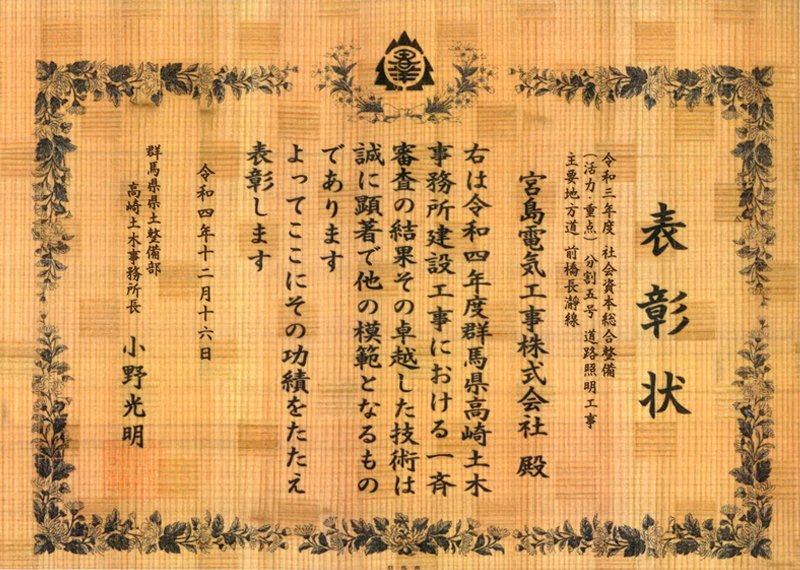 表彰状
令和三年度 社会資本総合整備
(活力・重点) 分割五号 道路照明工事
主要地方道 前橋長瀞線
宮島電気工事株式会社 殿
右は令和四年度群馬県高崎土木
事務所建設工事における一斉
審査の結果その卓越した技術は
誠に顕著で他の模範となるもの
であります
よってここにその功績をたたえ
表彰します
令和四年十二月十六日
群馬県県土整備部
高崎土木事務所長 小野光明